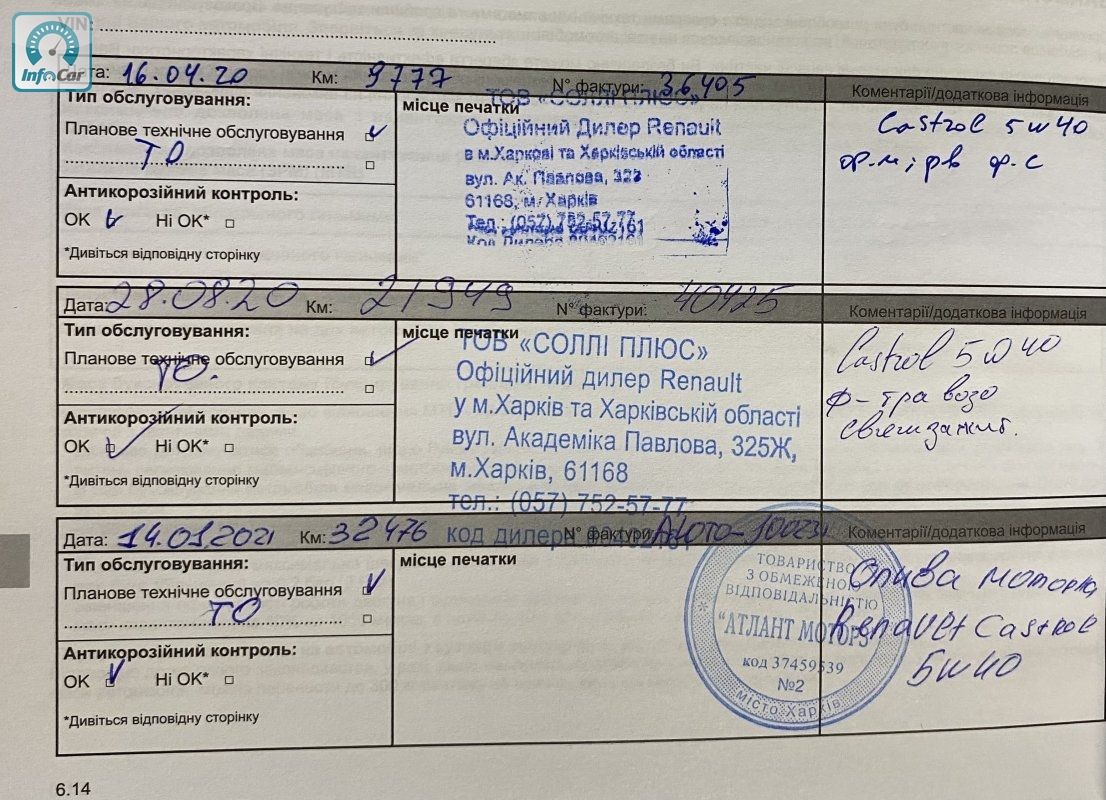 InfoCar
VIN:
Дата: 16.04.20 Км: 9777 N° фактури: 36405
Тип обслуговування:
Планове технічне обслуговування
ТО
Антикорозійний контроль:
ОК Ні ОК*
*Дивіться відповідну сторінку
місце печатки
ТОВ «СОЛЛІ ПЛЮС»
Офіційний Дилер Renault
в м.Харкові та Харківській області
вул. Ак. Павлова, 323
61168, м. Харків
Тел.: (057) 752-57-77
Код Дилера
Коментарії/додаткова інформація
Castrol 5w40
Дата: 28.08.20 Км: 21949 N° фактури: 40425
Тип обслуговування:
Планове технічне обслуговування
ТО.
Антикорозійний контроль:
ОК Ні ОК*
*Дивіться відповідну сторінку
місце печатки
ТОВ «СОЛЛІ ПЛЮС»
Офіційний дилер Renault
у м.Харків та Харківській області
вул. Академіка Павлова, 325Ж,
м.Харків, 61168
тел.: (057) 752-57-77
код дилера
Коментарії/додаткова інформація
Castrol 5w40
ф-тра возд
свечи зажиг.
Дата: 14.01.2021 Км: 32476 N° фактури:
Тип обслуговування:
Планове технічне обслуговування
ТО
Антикорозійний контроль:
ОК Ні ОК*
*Дивіться відповідну сторінку
місце печатки
ТОВАРИСТВО
З ОБМЕЖЕНОЮ
ВІДПОВІДАЛЬНІСТЮ
"АТЛАНТ МОТОРЗ"
код 37459539
№2
місто Харків
Коментарії/додаткова інформація
Олива моторна
Renault Castrol
5w40
6.14